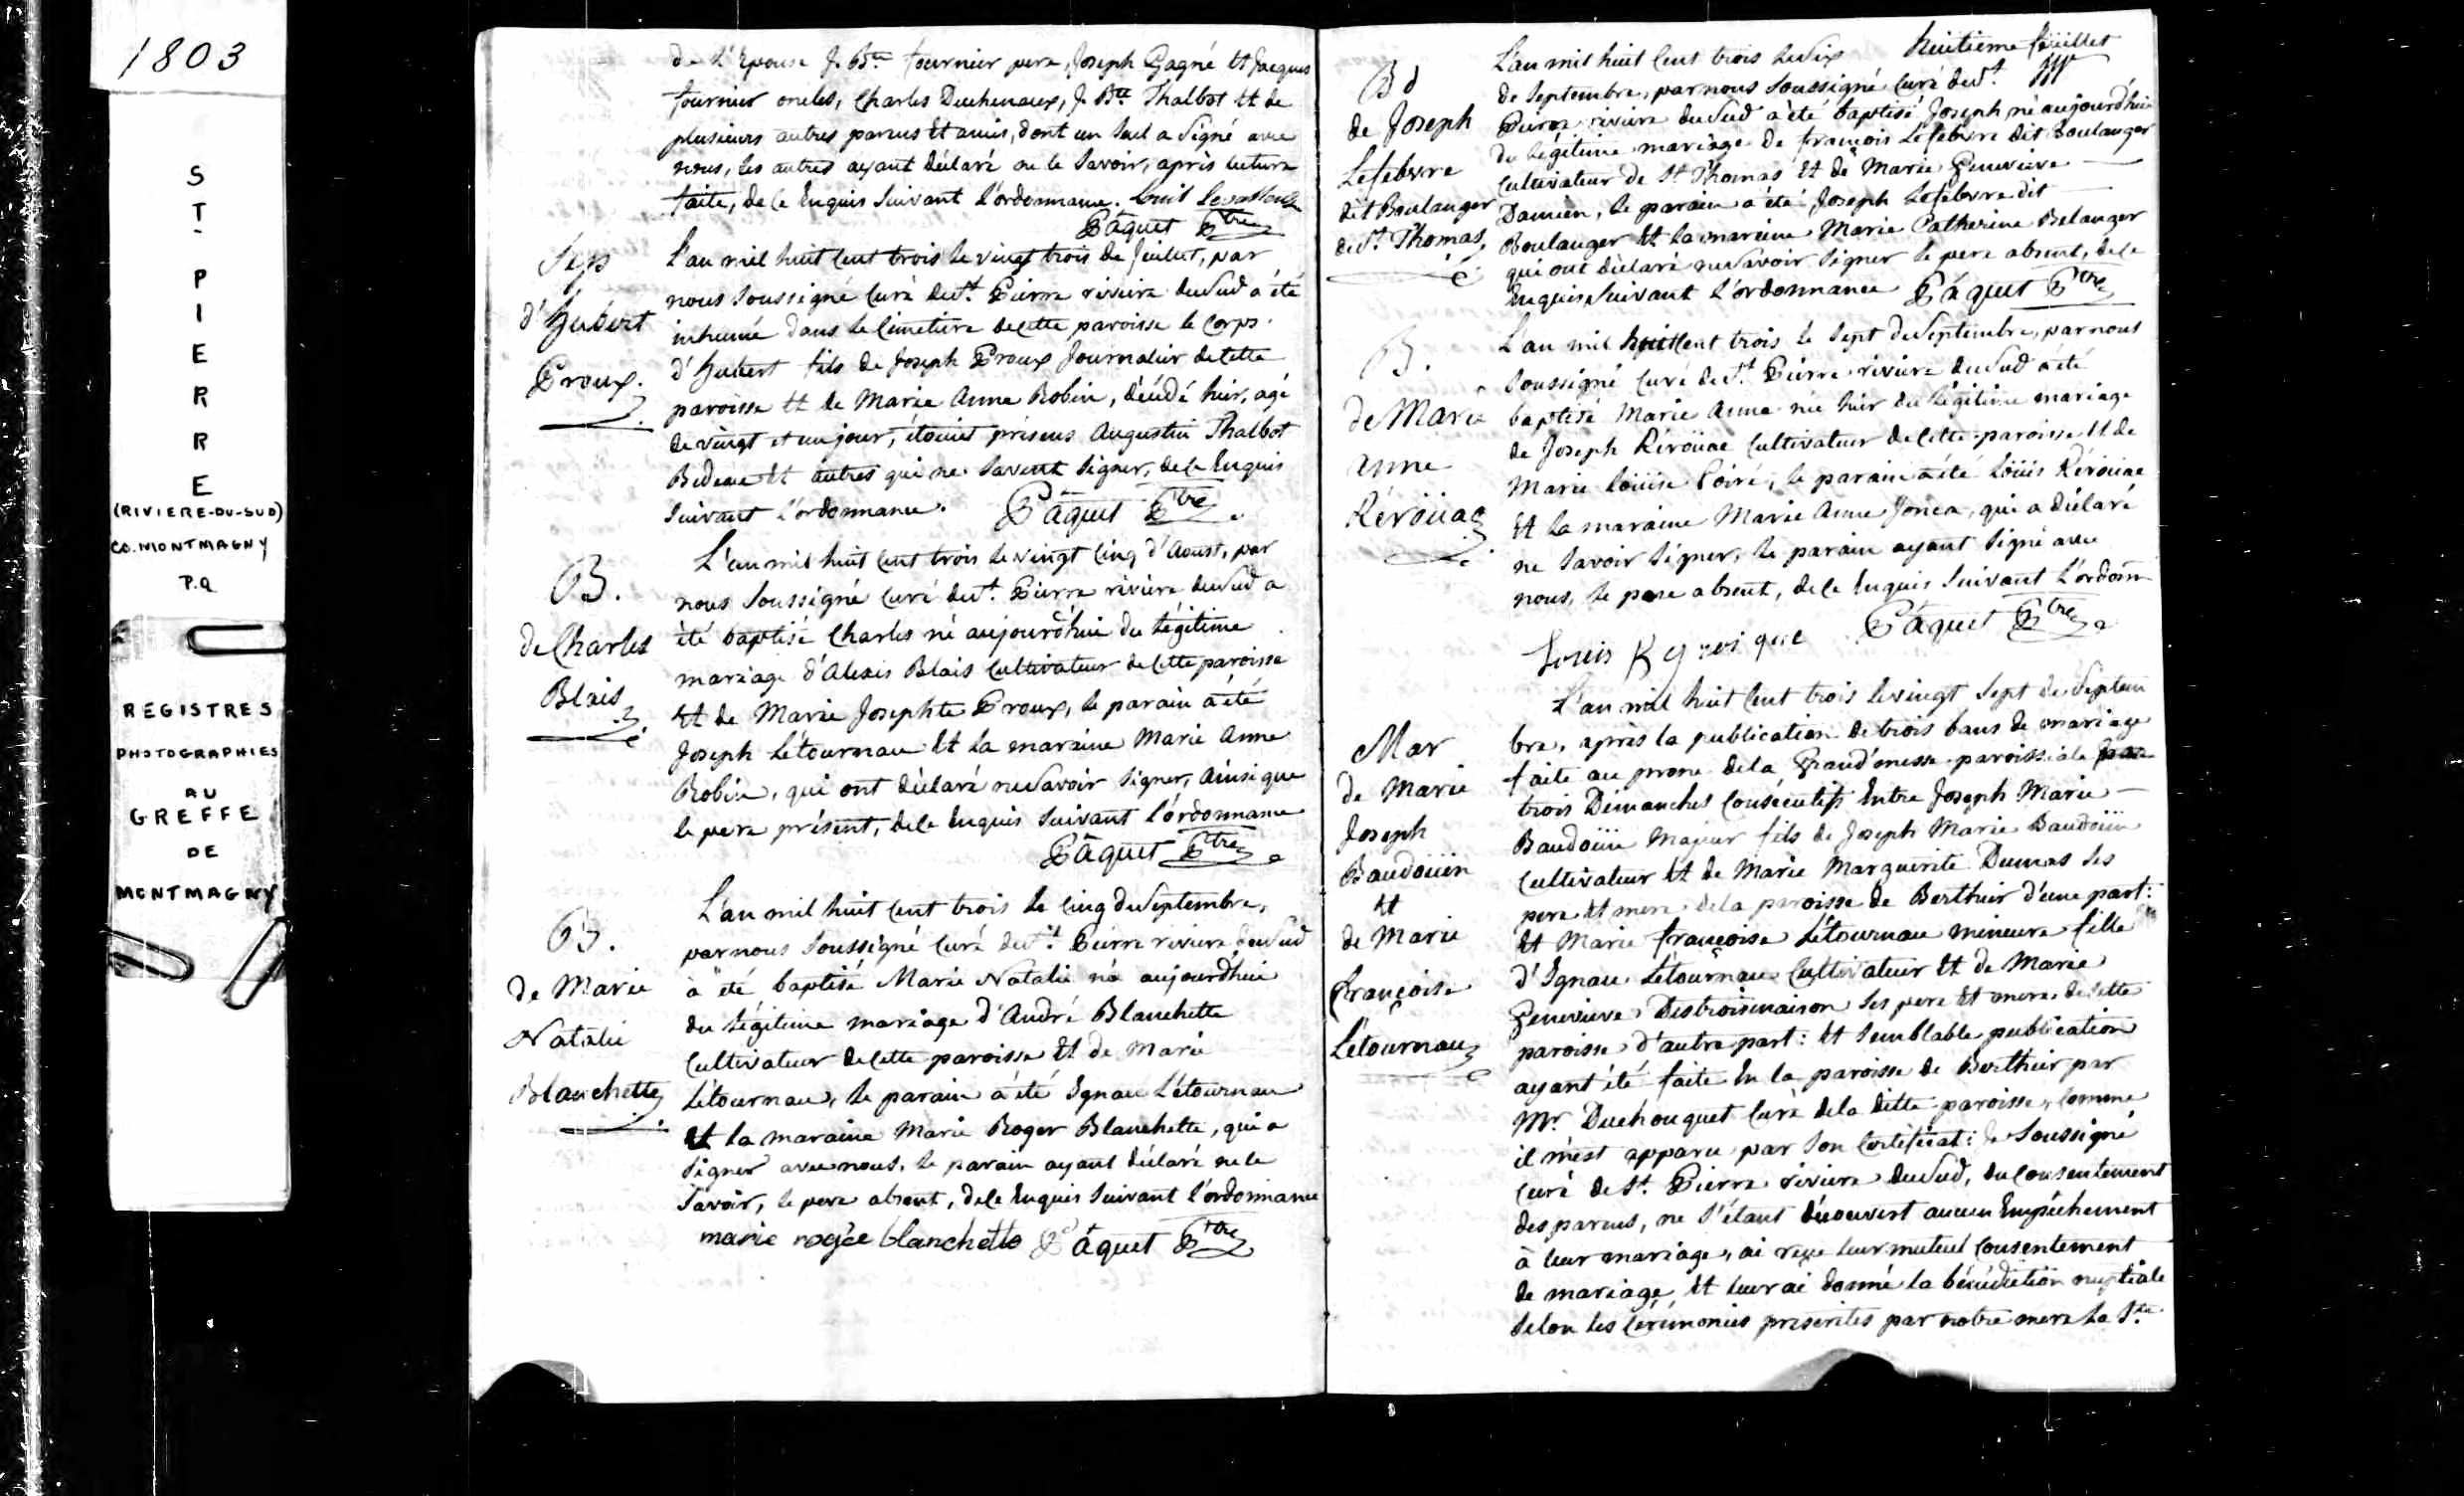 1803
ST PIERRE
(RIVIERE-DU-SUD)
CO. MONTMAGNY
P.Q
REGISTRES
PHOTOGRAPHIES
AU
GREFFE
DE
MONTMAGNY
de l'Epouse J. Bte fournier pere, Joseph Gagné et Jacques
fournier oncles, Charles Duchenaux, J. Bte Thalbot et de
plusieurs autres parens et amis, dont un seul a signé avec
nous, les autres ayant déclaré ne le savoir, après lecture
faite, de ce enquis suivant l'ordonnance. Louis Levasseur
Pâquet Ptre
Sep
d'hubert
Proux.
L'an mil huit cent trois le vingt trois de Juillet, par
nous soussigné curé de St. Pierre riviere du Sud a été
inhumé dans le cimetiere de cette paroisse le corps
d'hubert fils de Joseph Proux Journalier de cette
paroisse et de Marie Anne Robin, décédé hier, agé
de vingt et un jour, étoient présens Augustin Thalbot
Bedeau et autres qui ne savent signer, de ce enquis
suivant l'ordonnance. Pâquet Ptre
B.
de Charles
Blais
L'an mil huit cent trois le vingt cinq d'Aoust, par
nous soussigné curé de St. Pierre riviere du Sud a
été baptisé Charles né aujourd'hui du légitime
mariage d'Alexis Blais cultivateur de cette paroisse
et de Marie Josephte Proux, le parain a été
Joseph Létournau et la maraine Marie Anne
Robin, qui ont déclaré ne savoir signer, ainsi que
le pere présent, de ce enquis suivant l'ordonnance
Pâquet Ptre
B.
de Marie
Natalie
Blanchette
L'an mil huit cent trois le cinq de Septembre,
par nous soussigné curé de St. Pierre riviere du Sud
a été baptisé Marie Natalie né aujourd'hui
du légitime mariage d'André Blanchette
cultivateur de cette paroisse et de Marie
Létournau, le parain a été Ignace Létournau
et la maraine Marie Roger Blanchette, qui a
signer avec nous, le parain ayant déclaré ne le
savoir, le pere absent, de ce enquis suivant l'ordonnance
marie rogée blanchette Pâquet Ptre
huitieme feüillet
Bd
de Joseph
Lefebvre
dit Boulanger
de St. Thomas
L'an mil huit cent trois le six
de Septembre, par nous soussigné curé de St.
Pierre riviere du Sud a été baptisé Joseph né aujourd'hui
du légitime mariage de françois Lefebvre dit Boulanger
cultivateur de St Thomas et de Marie Genevieve
Damien, le parain a été Joseph Lefebvre dit
Boulanger et la maraine Marie Catherine Belanger
qui ont déclaré ne savoir signer le pere absent, de ce
enquis suivant l'ordonnance Pâquet Ptre
B.
de Marie
Anne
Kéroüac
L'an mil huit cent trois le sept de Septembre, par nous
soussigné curé de St. Pierre riviere du Sud a été
baptisé Marie Anne née hier du légitime mariage
de Joseph Kéroüac cultivateur de cette paroisse et de
Marie Loüise Poiré, le parain a été Loüis Kéroüac
et la maraine Marie Anne Jonca, qui a déclaré
ne savoir signer, le parain ayant signé avec
nous, le pere absent, de ce enquis suivant l'ordonn
Louis Pâquet Ptre
Mar
de Marie
Joseph
Baudoüin
et
de Marie
françoise
Létournau
L'an mil huit cent trois le vingt sept de Septem
bre, après la publication de trois bans de mariage
faite au prone de la Grand'messe paroissiale par
trois Dimanches consécutifs entre Joseph Marie
Baudoüin Majeur fils de Joseph Marie Baudoüin
cultivateur et de Marie Marguerite Dumas ses
pere et mere de la paroisse de Berthier d'une part:
et Marie françoise Létournau mineure fille
d'Ignace Létournau cultivateur et de Marie
Genevieve Destroismaison ses pere et mere de cette
paroisse d'autre part: et semblable publication
ayant été faite en la paroisse de Berthier par
Mr. Duchouquet curé de la ditte paroisse, comme
il m'est apparu par son certificat: Je soussigné
curé de St. Pierre riviere du Sud, du consentement
des parens, ne s'étant découvert aucun empêchement
à leur mariage, ai reçu leur mutuel consentement
de mariage et leur ai donné la bénédiction nuptiale
selon les cérémonies prescrites par notre mere la Ste